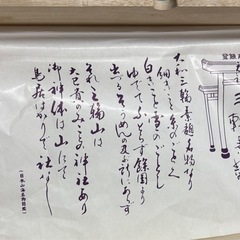 登録
三
大和三輪素麺名物なり
細きこと糸のごとく
白きこと雪のごとし
ゆでてふとらず余国より
出づるそうめんの及ぶ所にあらず
それ三輪山は
大己貴のみことの神社あり
御神体は山にて
鳥居ばかりで社なし
(日本山海名物図絵)